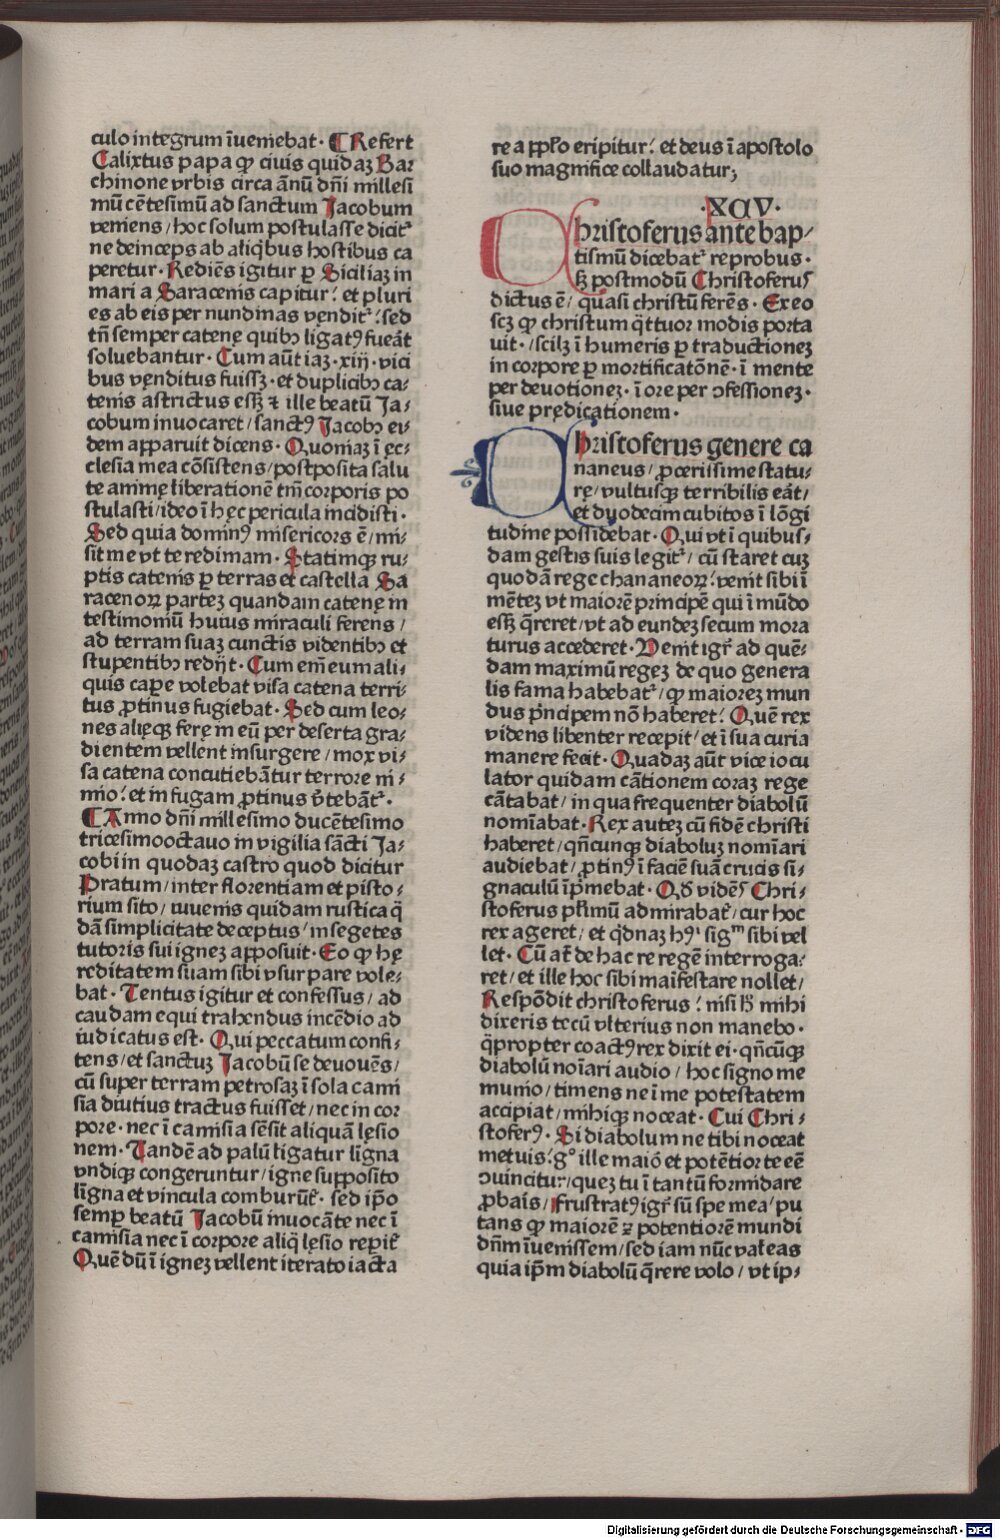 culo integrum īueniebat · ⸿ Refert
Calixtus papa qꝫ ciuis quidaꝫ Bar
chinone vrbis circa ānū dn̄i millesi
mū cētesimū ad sanctum Jacobum
veniens / hoc solum postulasse dicit᷑
ne deinceps ab aliq̇bus hostibus ca
peretur · Rediēs igitur ꝑ Siciliaꝫ in
mari a Saracenis capitur : et pluri
es ab eis per nundinas vęndit᷑ : sed
tn̄ semper catenę quibꝰ ligatꝰ fueāt
soluebantur · Cum aūt iaꝫ · xiij · vici
bus vęnditus fuissꝫ · et duplicibꝰ ca⸗
tenis astrictus essꝫ ⁊ ille beatū Ja⸗
cobum inuocaret / sanctꝰ Jacobꝰ ei⸗
dem apparuit dicens · Quoniaꝫ ī ęc⸗
clesia mea cōsistens / postposita salu
te animę liberationē tm̄ corporis po
stulasti / ideo ī hęc pericula incidisti ·
Sed quia dominꝰ misericors ē / mi⸗
sit me vt te redimam · Statimqꝫ ru⸗
ptis catenis ꝑ terras et castella Sa
racenoꝝ parteꝫ quandam catenę in
testimoniū huius miraculi ferens /
ad terram suaꝫ cunctis videntibꝰ et
stupentibꝰ redijt · Cum em̄ eum ali⸗
quis caꝑe volebat visa catena terri⸗
tus ꝓtinus fugiebat · Sed cum leo⸗
nes alięqꝫ ferę in eū per deserta gra⸗
dientem vellent insurgere / mox vi⸗
sa catena concutiebāntur terrore ni⸗
mio : et in fugam ꝓtinus v̄tebānt᷑ ·
⸿ Anno dn̄i millesimo ducētesimo
tricesimooctauo in vigilia sācti Ja⸗
cobi in quodaꝫ castro quod dicitur
Pratum / inter florentiam et pisto⸗
rium sito / iuuenis quidam rustica q̄
dā simplicitate deceptus / in segetes
tutoris sui igneꝫ apposuit · Eo qꝫ hę
reditatem suam sibi vsurpare vole⸗
bat · Tentus igitur et confessus / ad
caudam equi trahendus incēdio ad
iudicatus est · Qui peccatum confi⸗
tens / et sanctuꝫ Jacobū se deuouēs /
cū super terram petrosaꝫ ī sola cami
sia diutius tractus fuisset / nec in cor
pore · nec ī camisia sēsit aliquā lęsio
nem · Tandē ad palū ligatur ligna
vndiqꝫ congeruntur / igne supposito
ligna et vincula comburūt᷑ · sed ip̄o
semꝑ beatū Jacobū inuocāte nec ī
camisia nec ī corpore aliq̇ lęsio reꝑit᷑
Quē dū ī igneꝫ vellent iterato iacta
re a ppl̄o eripitur : et deus ī apostolo
suo magnifice collaudatur ;
· XCV ·
Christoferus ante bap⸗
tismū dicebat᷑ reprobus ·
sꝫ postmodū Christoferus
dictus ē / quasi christū ferēs · Ex eo
scꝫ qꝫ christum q̄ttuor modis porta
uit · / scilꝫ ī humeris ꝑ traductioneꝫ
in corpore ꝑ mortificatōnē · ī mente
per deuotioneꝫ · ī ore per ↄfessioneꝫ ·
siue prędicationem ·
Christoferus genere ca
naneus / ꝓcerissime statu⸗
rę / vultusqꝫ terribilis eāt /
et duodecim cubitos ī lōgi
tudine possidebat · Qui vt ī quibus⸗
dam gestis suis legit᷑ / cū staret cuꝫ
quodā rege chananeoꝝ : venit sibi ī
mēteꝫ vt maiorē principē qui ī mūdo
essꝫ q̄reret / vt ad eundeꝫ secum mora
turus accederet · Venit igr̄ ad quē⸗
dam maximū regeꝫ de quo genera
lis fama habebat᷑ / qꝫ maioreꝫ mun
dus p̄ncipem nō haberet : Quē rex
videns libenter recepit / et ī sua curia
manere fecit · Quadaꝫ aūt vice iocu
lator quidam cātionem coraꝫ rege
cātabat / in qua frequenter diabolū
nomīabat · Rex auteꝫ cū fidē christi
haberet / qn̄cunqꝫ diaboluꝫ nomīari
audiebat / ꝓtinꝰ ī faciē suā crucis si⸗
gnaculū īp̄mebat · Qd̄ vidēs Chri⸗
stoferus pl̄imū admirabat᷑ / cur hoc
rex ageret / et q̇dnaꝫ hꝰi sigᵐ sibi vel
let · Cū at̄ de hac re regē interroga⸗
ret / et ille hoc sibi maīfestare nollet /
Respōdit christoferus : nisi h̄ mihi
dixeris tecū vlterius non manebo ·
q̄propter coactꝰ rex dixit ei · qn̄cūqꝫ
diabolū noīari audio / hoc signo me
munio / timens ne ī me potestatem
accipiat / mihiqꝫ noceat · Cui Chri⸗
stoferꝰ · Si diabolum ne tibi noceat
metuis : gᵒ ille maior̄ et potētior te eē
ↄuincitur / queꝫ tu ī tantū formidare
ꝓbais / frustratꝰ igr̄ sū spe mea / pu
tans qꝫ maiorē ⁊ potentiorē mundi
dn̄m īuenissem / sed iam nūc valeas
quia ip̄m diabolū q̄rere volo / vt ip⸗
Digitalisierung gefördert durch die Deutsche Forschungsgemeinschaft · DFG